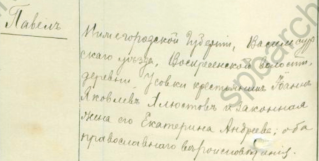 Павелъ
Нижегородской губерніи, Василь
скаго уѣзда, Воскресенской волости,
деревни Усовки крестьянинъ
Яковлевъ и законная
жена его Екатерина Андреева; оба
православнаго вѣроисповѣданія.